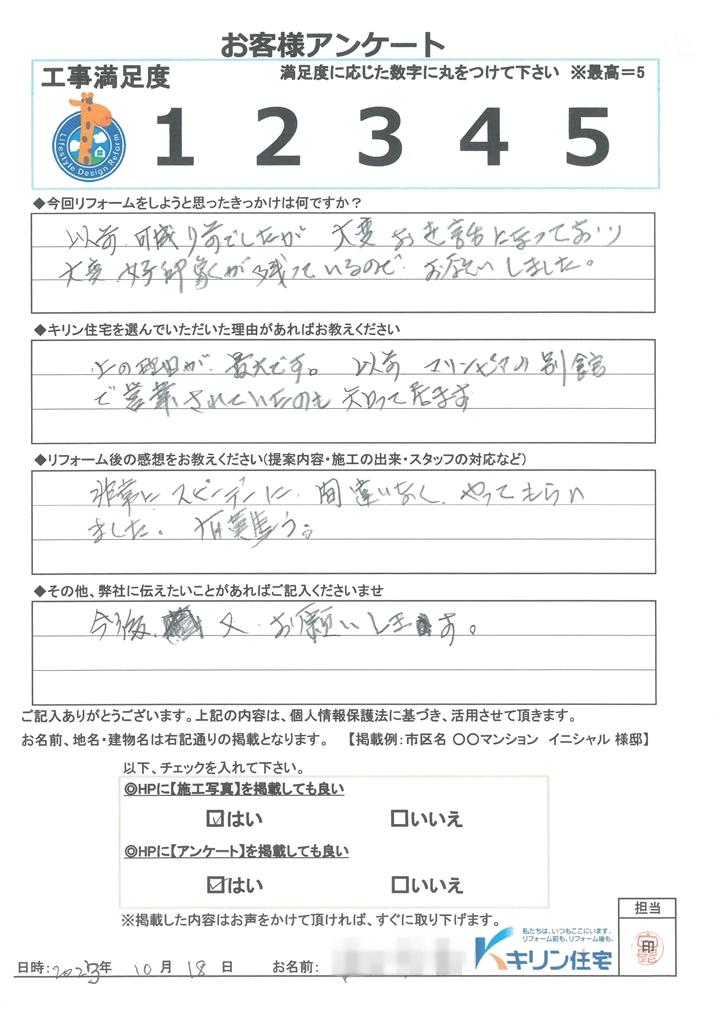 お客様アンケート
工事満足度
満足度に応じた数字に丸をつけて下さい ※最高=5
Lifestyle Design Reform
1 2 3 4 5
◆今回リフォームをしようと思ったきっかけは何ですか？
以前、可成り前でしたが 大変お世話になっており
大変好印象が残っているので、お願いしました。
◆キリン住宅を選んでいただいた理由があればお教えください
上の理由が、最大です。以前 マリンピアの別館
で営業されていたのも知って居ます
◆リフォーム後の感想をお教えください(提案内容・施工の出来・スタッフの対応など)
非常に スピーデーに、間違いなく、やってもらい
ました。有難う。
◆その他、弊社に伝えたいことがあればご記入くださいませ
今後、又、お願いします。
ご記入ありがとうございます。上記の内容は、個人情報保護法に基づき、活用させて頂きます。
お名前、地名・建物名は右記通りの掲載となります。 【掲載例：市区名 〇〇マンション イニシャル 様邸】
以下、チェックを入れて下さい。
◎HPに【施工写真】を掲載しても良い
☑はい □いいえ
◎HPに【アンケート】を掲載しても良い
☑はい □いいえ
※掲載した内容はお声をかけて頂ければ、すぐに取り下げます。
担当
印
私たちは、いつもここにいます。
リフォーム前も、リフォーム後も。
キリン住宅
日時：2023年 10月 18日 お名前：